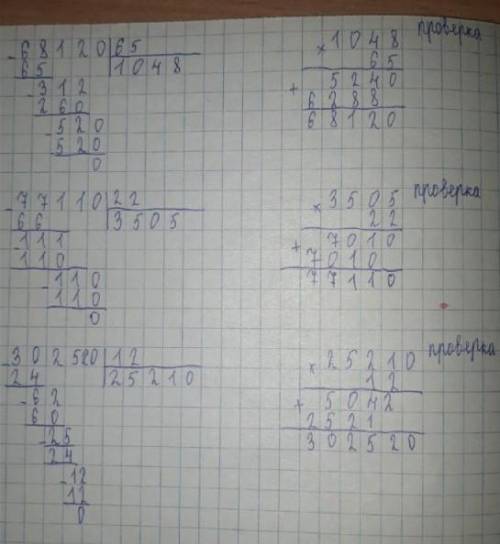 - 68120 | 65
65 | 1048
- 312
260
- 520
520
0
проверка
× 1048
65
+ 5240
6288
68120
- 77110 | 22
66 | 3505
- 111
110
- 110
110
0
проверка
× 3505
22
+ 7010
7010
77110
- 302520 | 12
24 | 25210
- 62
60
- 25
24
- 12
12
0
проверка
× 25210
12
+ 5042
2521
302520